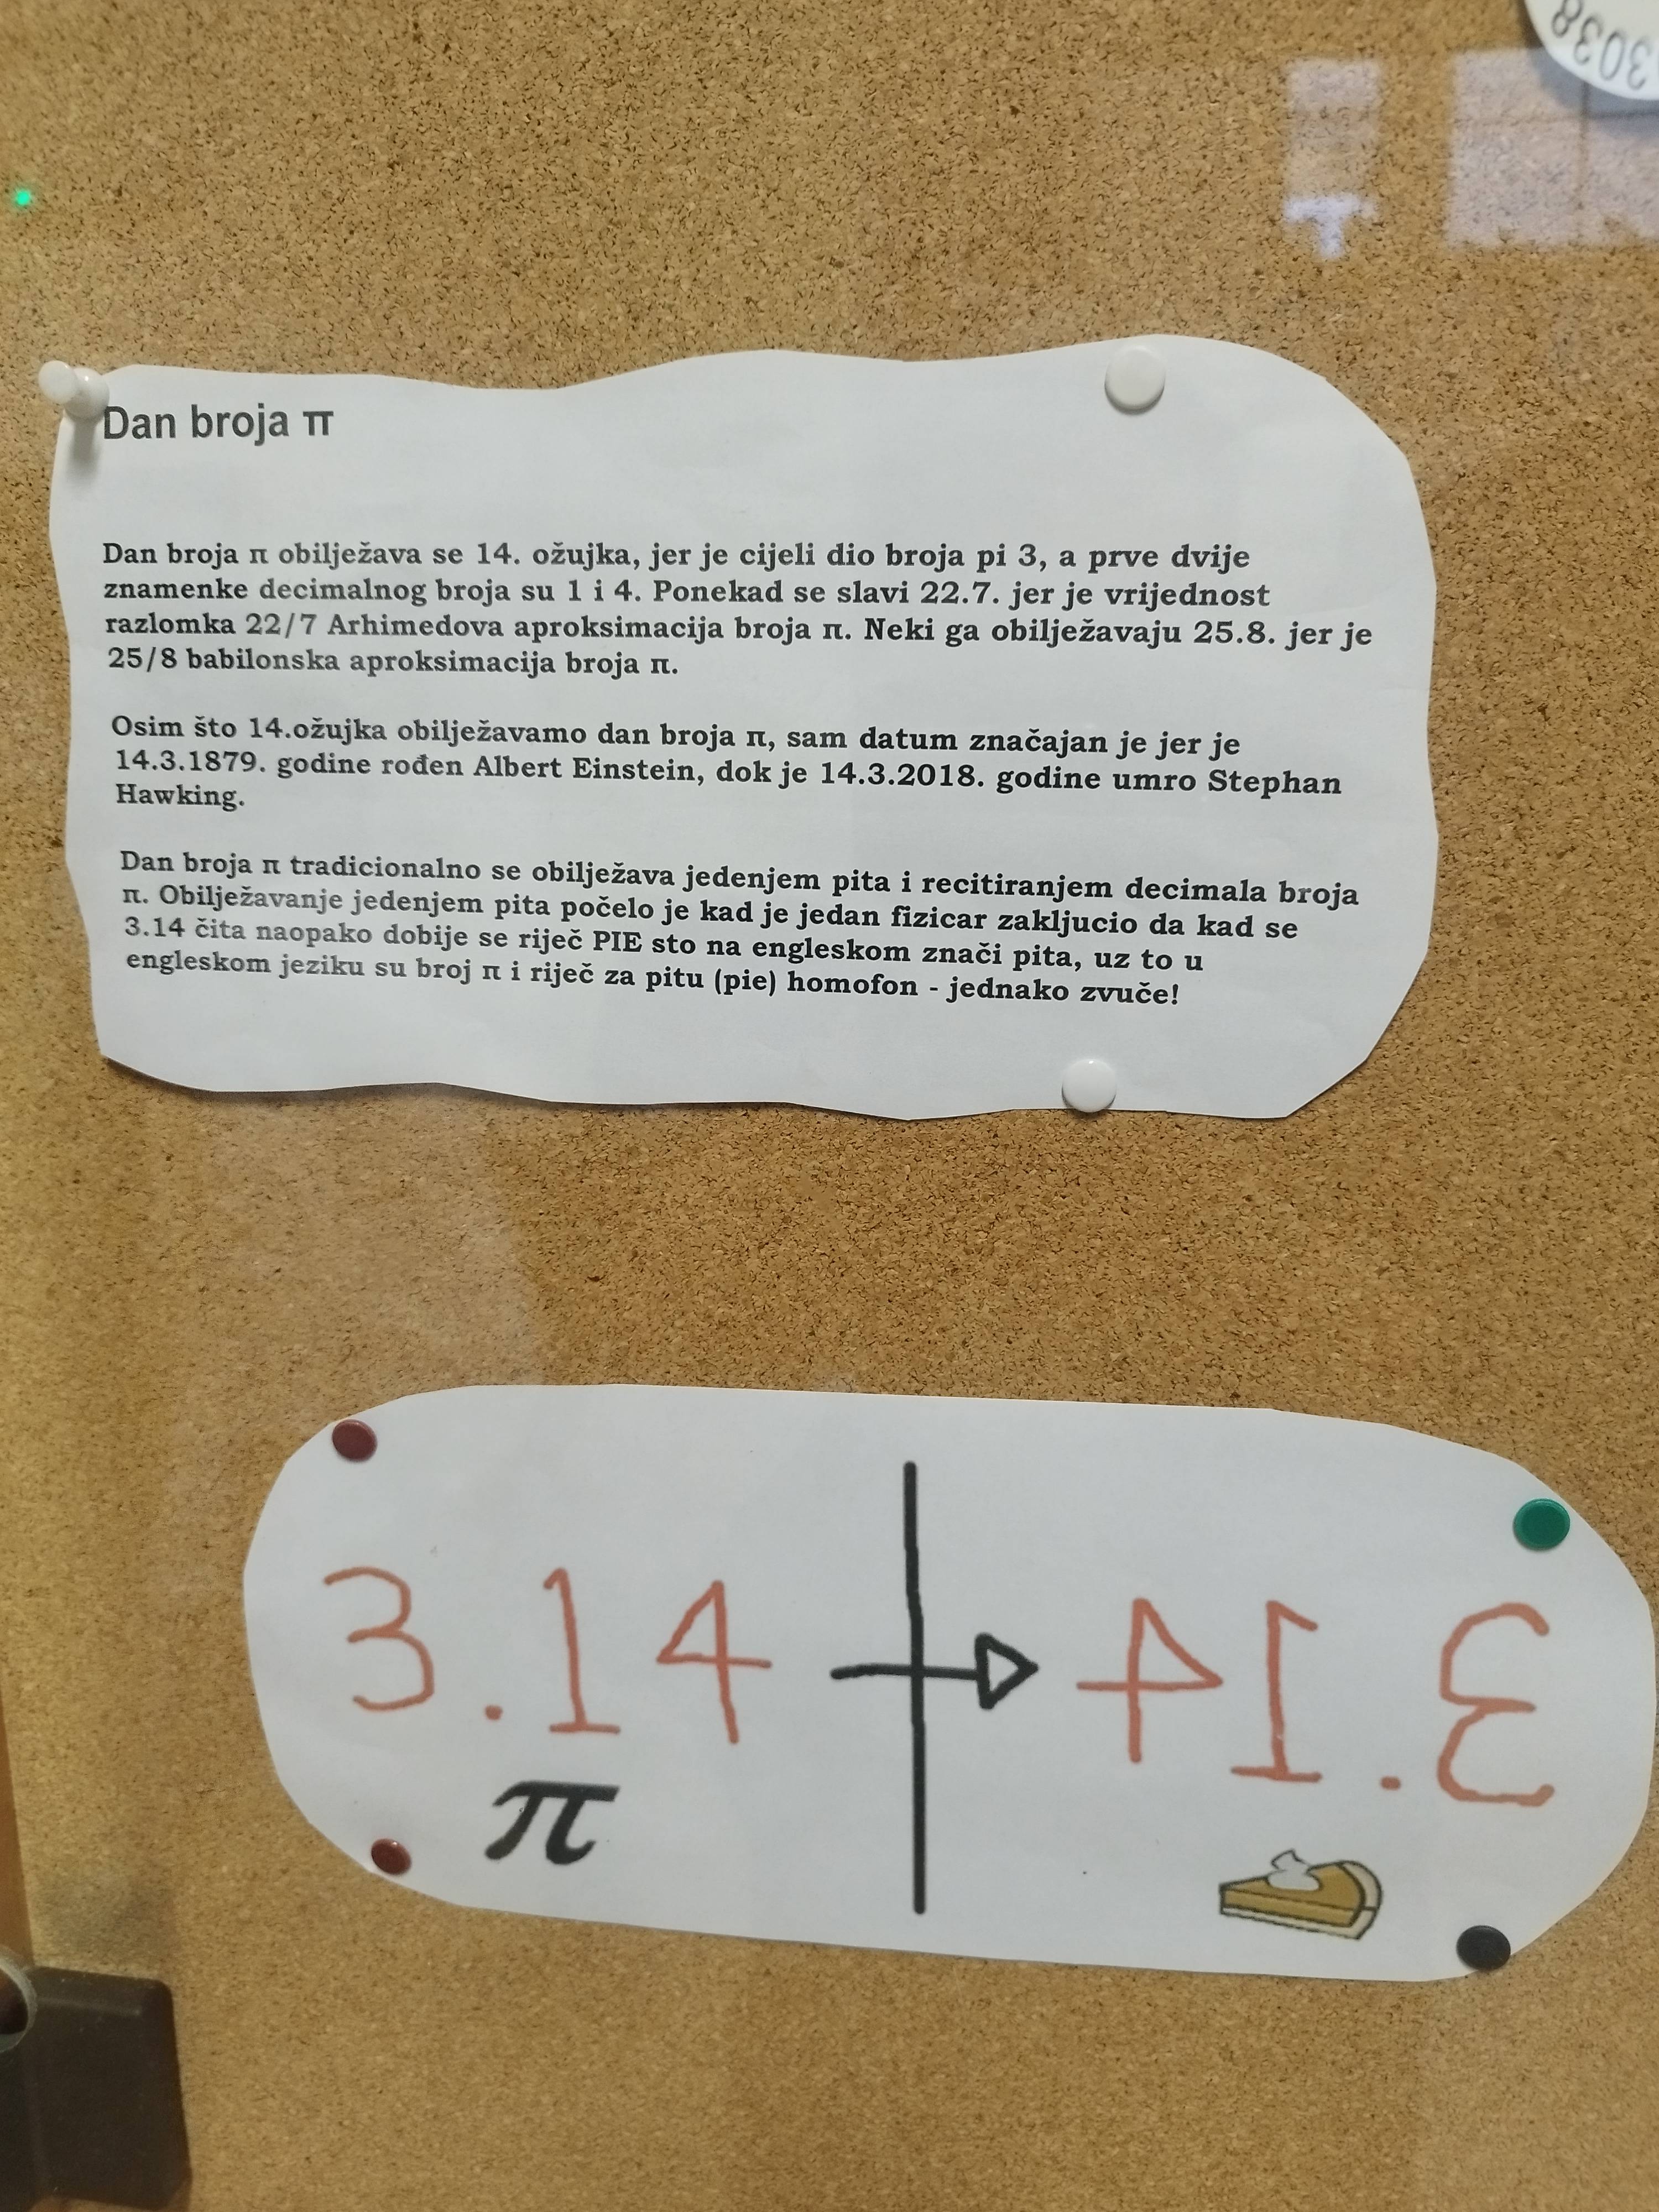 3038
Dan broja π
Dan broja π obilježava se 14. ožujka, jer je cijeli dio broja pi 3, a prve dvije
znamenke decimalnog broja su 1 i 4. Ponekad se slavi 22.7. jer je vrijednost
razlomka 22/7 Arhimedova aproksimacija broja π. Neki ga obilježavaju 25.8. jer je
25/8 babilonska aproksimacija broja π.
Osim što 14.ožujka obilježavamo dan broja π, sam datum značajan je jer je
14.3.1879. godine rođen Albert Einstein, dok je 14.3.2018. godine umro Stephan
Hawking.
Dan broja π tradicionalno se obilježava jedenjem pita i recitiranjem decimala broja
π. Obilježavanje jedenjem pita počelo je kad je jedan fizicar zakljucio da kad se
3.14 čita naopako dobije se riječ PIE sto na engleskom znači pita, uz to u
engleskom jeziku su broj π i riječ za pitu (pie) homofon - jednako zvuče!
3.14 3.14
π